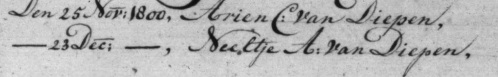 Den 25 Nov: 1800, Arien C: van Diepen,
— 23 Dec: —, Neeltje A: van Diepen,